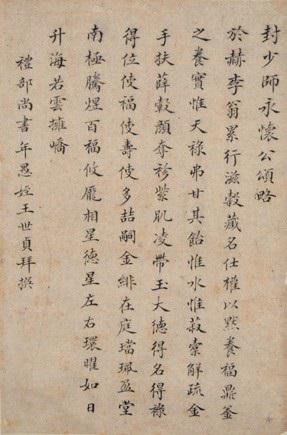 封少師永懷公頌略
於赫李翁累行滋穀藏名仕權以點養福鼎釜
之養實惟天祿弗甘其飴惟水惟菽橐解疏金
手扶薛轂顏奪袗紫肌凌帶玉大德得名得祿
得位使福使壽使多喆嗣金緋在庭璫珮盈堂
南極騰煋百福攸龐相星德星左右環曜如日
升海若雲擁嶠
禮部尚書年愚姪王世貞拜撰